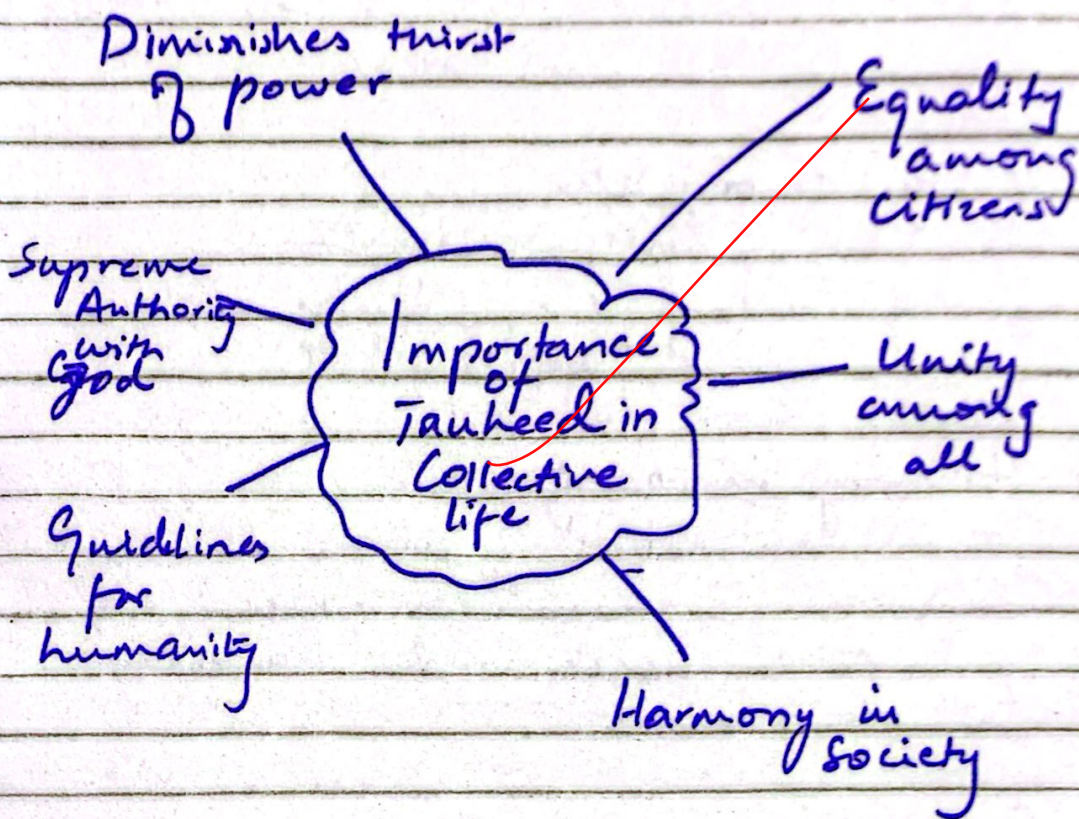 Diminishes thirst
of power
Equality
among
citizens
Supreme
Authority
with
god
Importance
of
Tauheed in
Collective
life
Unity
among
all
Guidelines
for
humanity
Harmony in
society